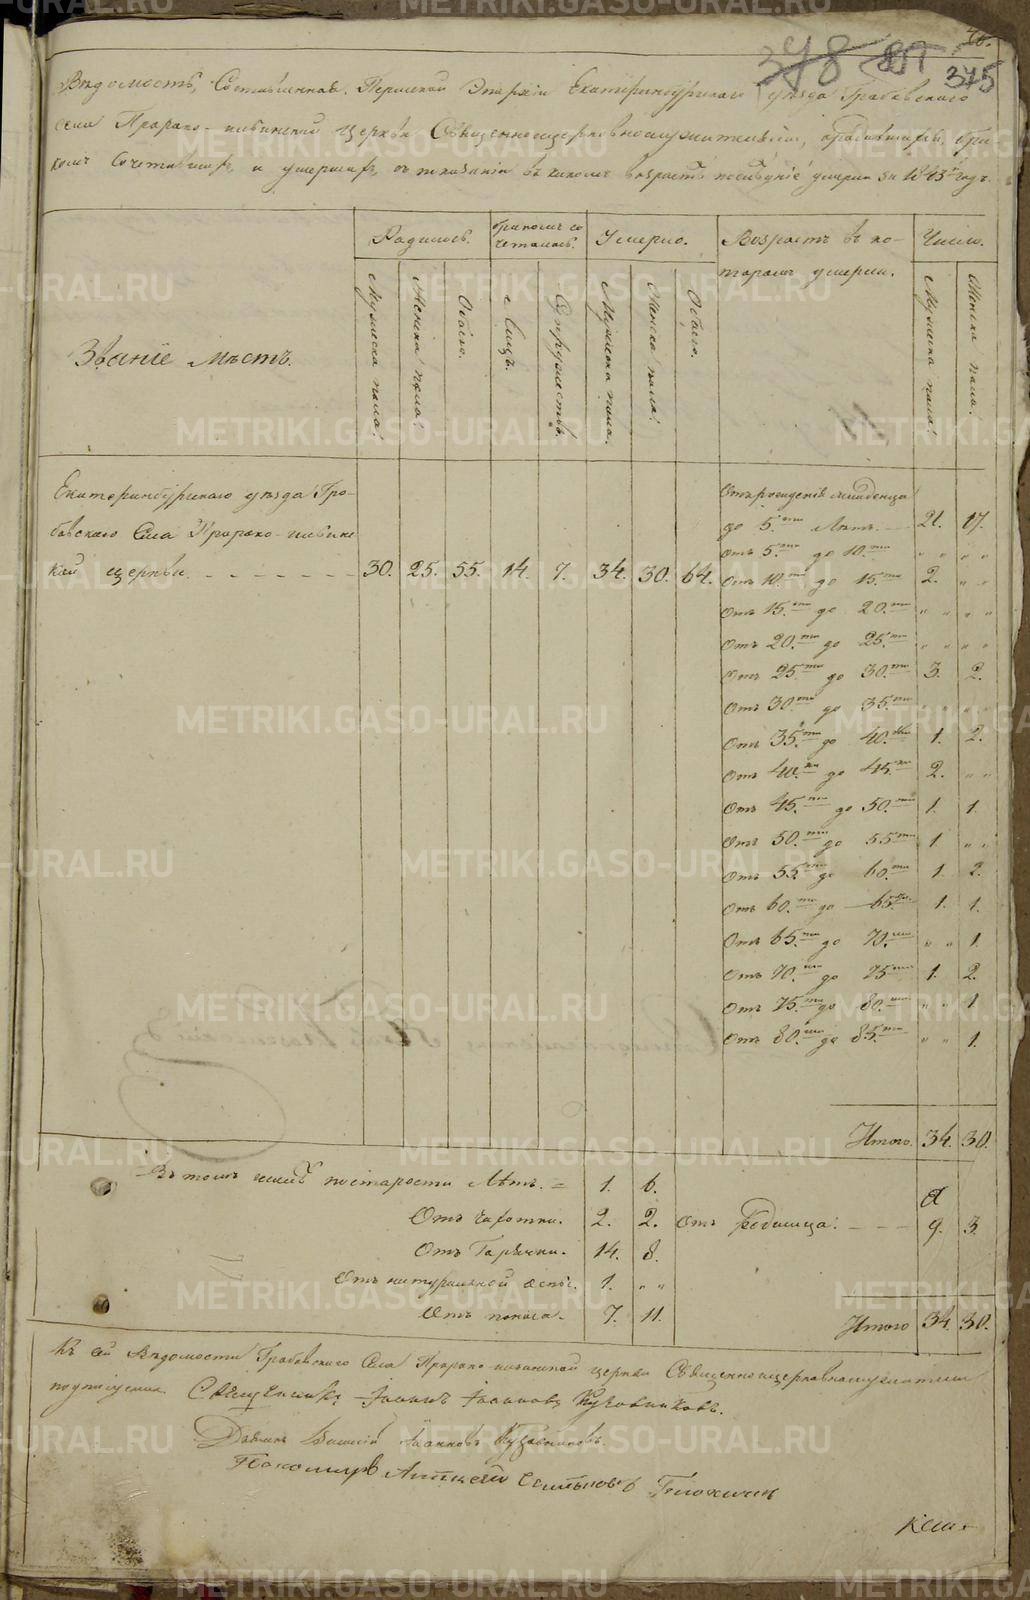 375
Вѣдомость, Составленная Пермской Епархіи Екатеринбургскаго уѣзда Грабовскаго
села Пророко-ильинской церкви Священноцерковнослужителями, о родившихся, бра
комъ сочетавшихся, и умершихъ, съ показаніемъ въ какомъ возрастѣ послѣдніе умерли за 1843 годъ.
Званіе мѣстъ.
Родилось.
бракомъ со
четалось.
Умерло.
Возрастъ въ ко-
торомъ умерли.
Число.
Мужеска пола.
Женска пола.
Обоего.
Лицъ.
Супружествъ.
Мужеска пола.
Женска пола.
Обоего.
Мужеска пола.
Женска пола.
Екатеринбургскаго уѣзда Гро-
бовскаго Села Пророко-ильин
ской церкви. 30. 25. 55. 14. 7. 34. 30. 64.
Отъ рожденія младенца
до 5.ти Лѣтъ. 21. 17.
отъ 5.ти до 10.ти „ „ „ „
Отъ 10.ти до 15.ти 2. „ „
Отъ 15.ти до 20.ти „ „ „ „
Отъ 20.ти до 25.ти „ „ „ „
Отъ 25.ти до 30.ти 3. 2.
Отъ 30.ти до 35.ти „ „ „ „
Отъ 35.ти до 40.ти 1. 2.
Отъ 40.ти до 45.ти 2. „ „
Отъ 45.ти до 50.ти 1. 1.
Отъ 50.ти до 55.ти 1. „ „
Отъ 55.ти до 60.ти 1. 2.
Отъ 60.ти до 65.ти 1. 1.
Отъ 65.ти до 70.ти „ „ 1.
Отъ 70.ти до 75.ти 1. 2.
Отъ 75.ти до 80.ти „ „ 1.
Отъ 80.ти до 85.ти „ „ 1.
Итого. 34. 30.
Въ томъ числѣ по старости Лѣтъ. 1. 6.
Отъ Чахотки. 2. 2. Отъ Родимца. 9. 3.
Отъ Горячки. 14. 8.
Отъ натуральной оспы. 1. „ „
Отъ поноса. 7. 11.
Итого 34. 30.
Къ сей Вѣдомости Грабовскаго Села Пророко-ильинской церкви Священноцерковнослужители
подписуемся Священникъ Іоаннъ Іоанновъ Кузовниковъ.
Дьячекъ Василій Іоанновъ Кузовниковъ
Пономарь Алексѣй Семеновъ
METRIKI.GASO-URAL.RU